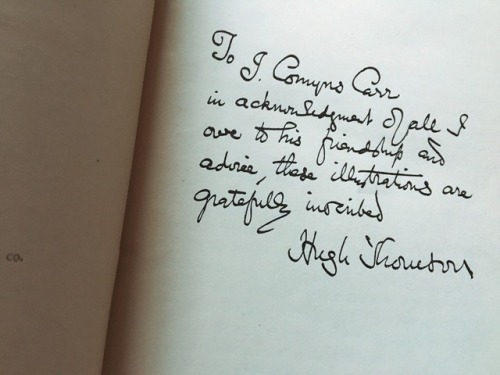 co.
To J. Comyns Carr
in acknowledgment of all I
owe to his friendship and
advice, these illustrations are
gratefully inscribed
Hugh Thomson